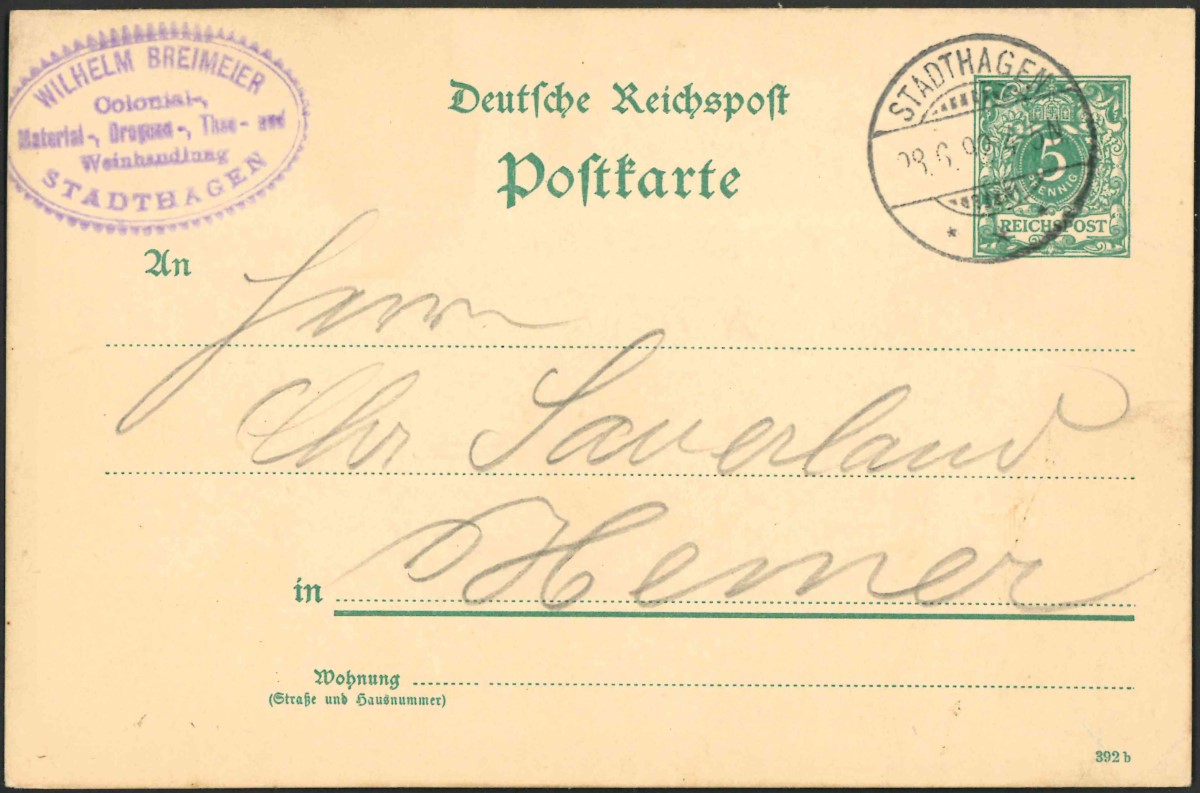 WILHELM BREIMEIER
Colonial-,
Material-, Droguen-, Thee- und
Weinhandlung
STADTHAGEN
Deutsche Reichspost
Postkarte
STADTHAGEN
5
PFENNIG
REICHSPOST
An
Herrn
Chr Sauerland
in Hemer
Wohnung
(Straße und Hausnummer)
392 b